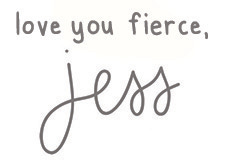 love you fierce,
jess